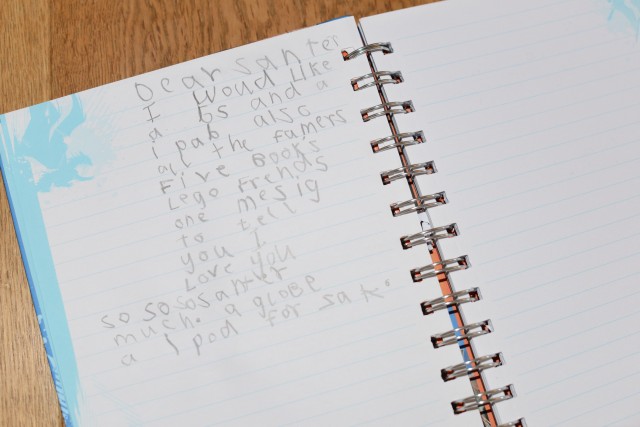 Dear santer
I woud like
a bs and a
i pab also
all the famers
Five Books
Lego Frends
one mesig
to tell
you I
Love you
so so so santer
much. a globe
a I pod for sak.